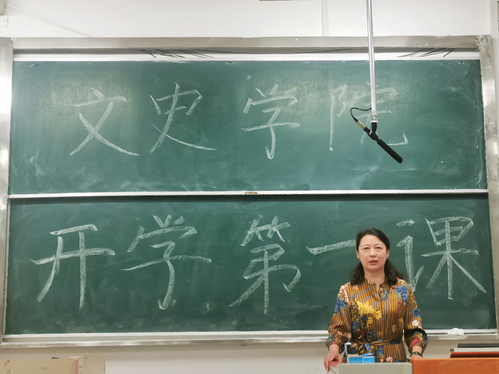 文史学院
开学第一课